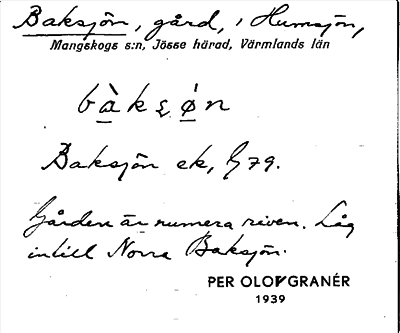 Baksjön, gård, i Humsjön,
Mangskogs s:n, Jösse härad, Värmlands län
bàksø´n
Baksjön ek, G79.
Gården är numera riven. Låg
intill Norra Baksjön.
PER OLOF GRANÉR
1939